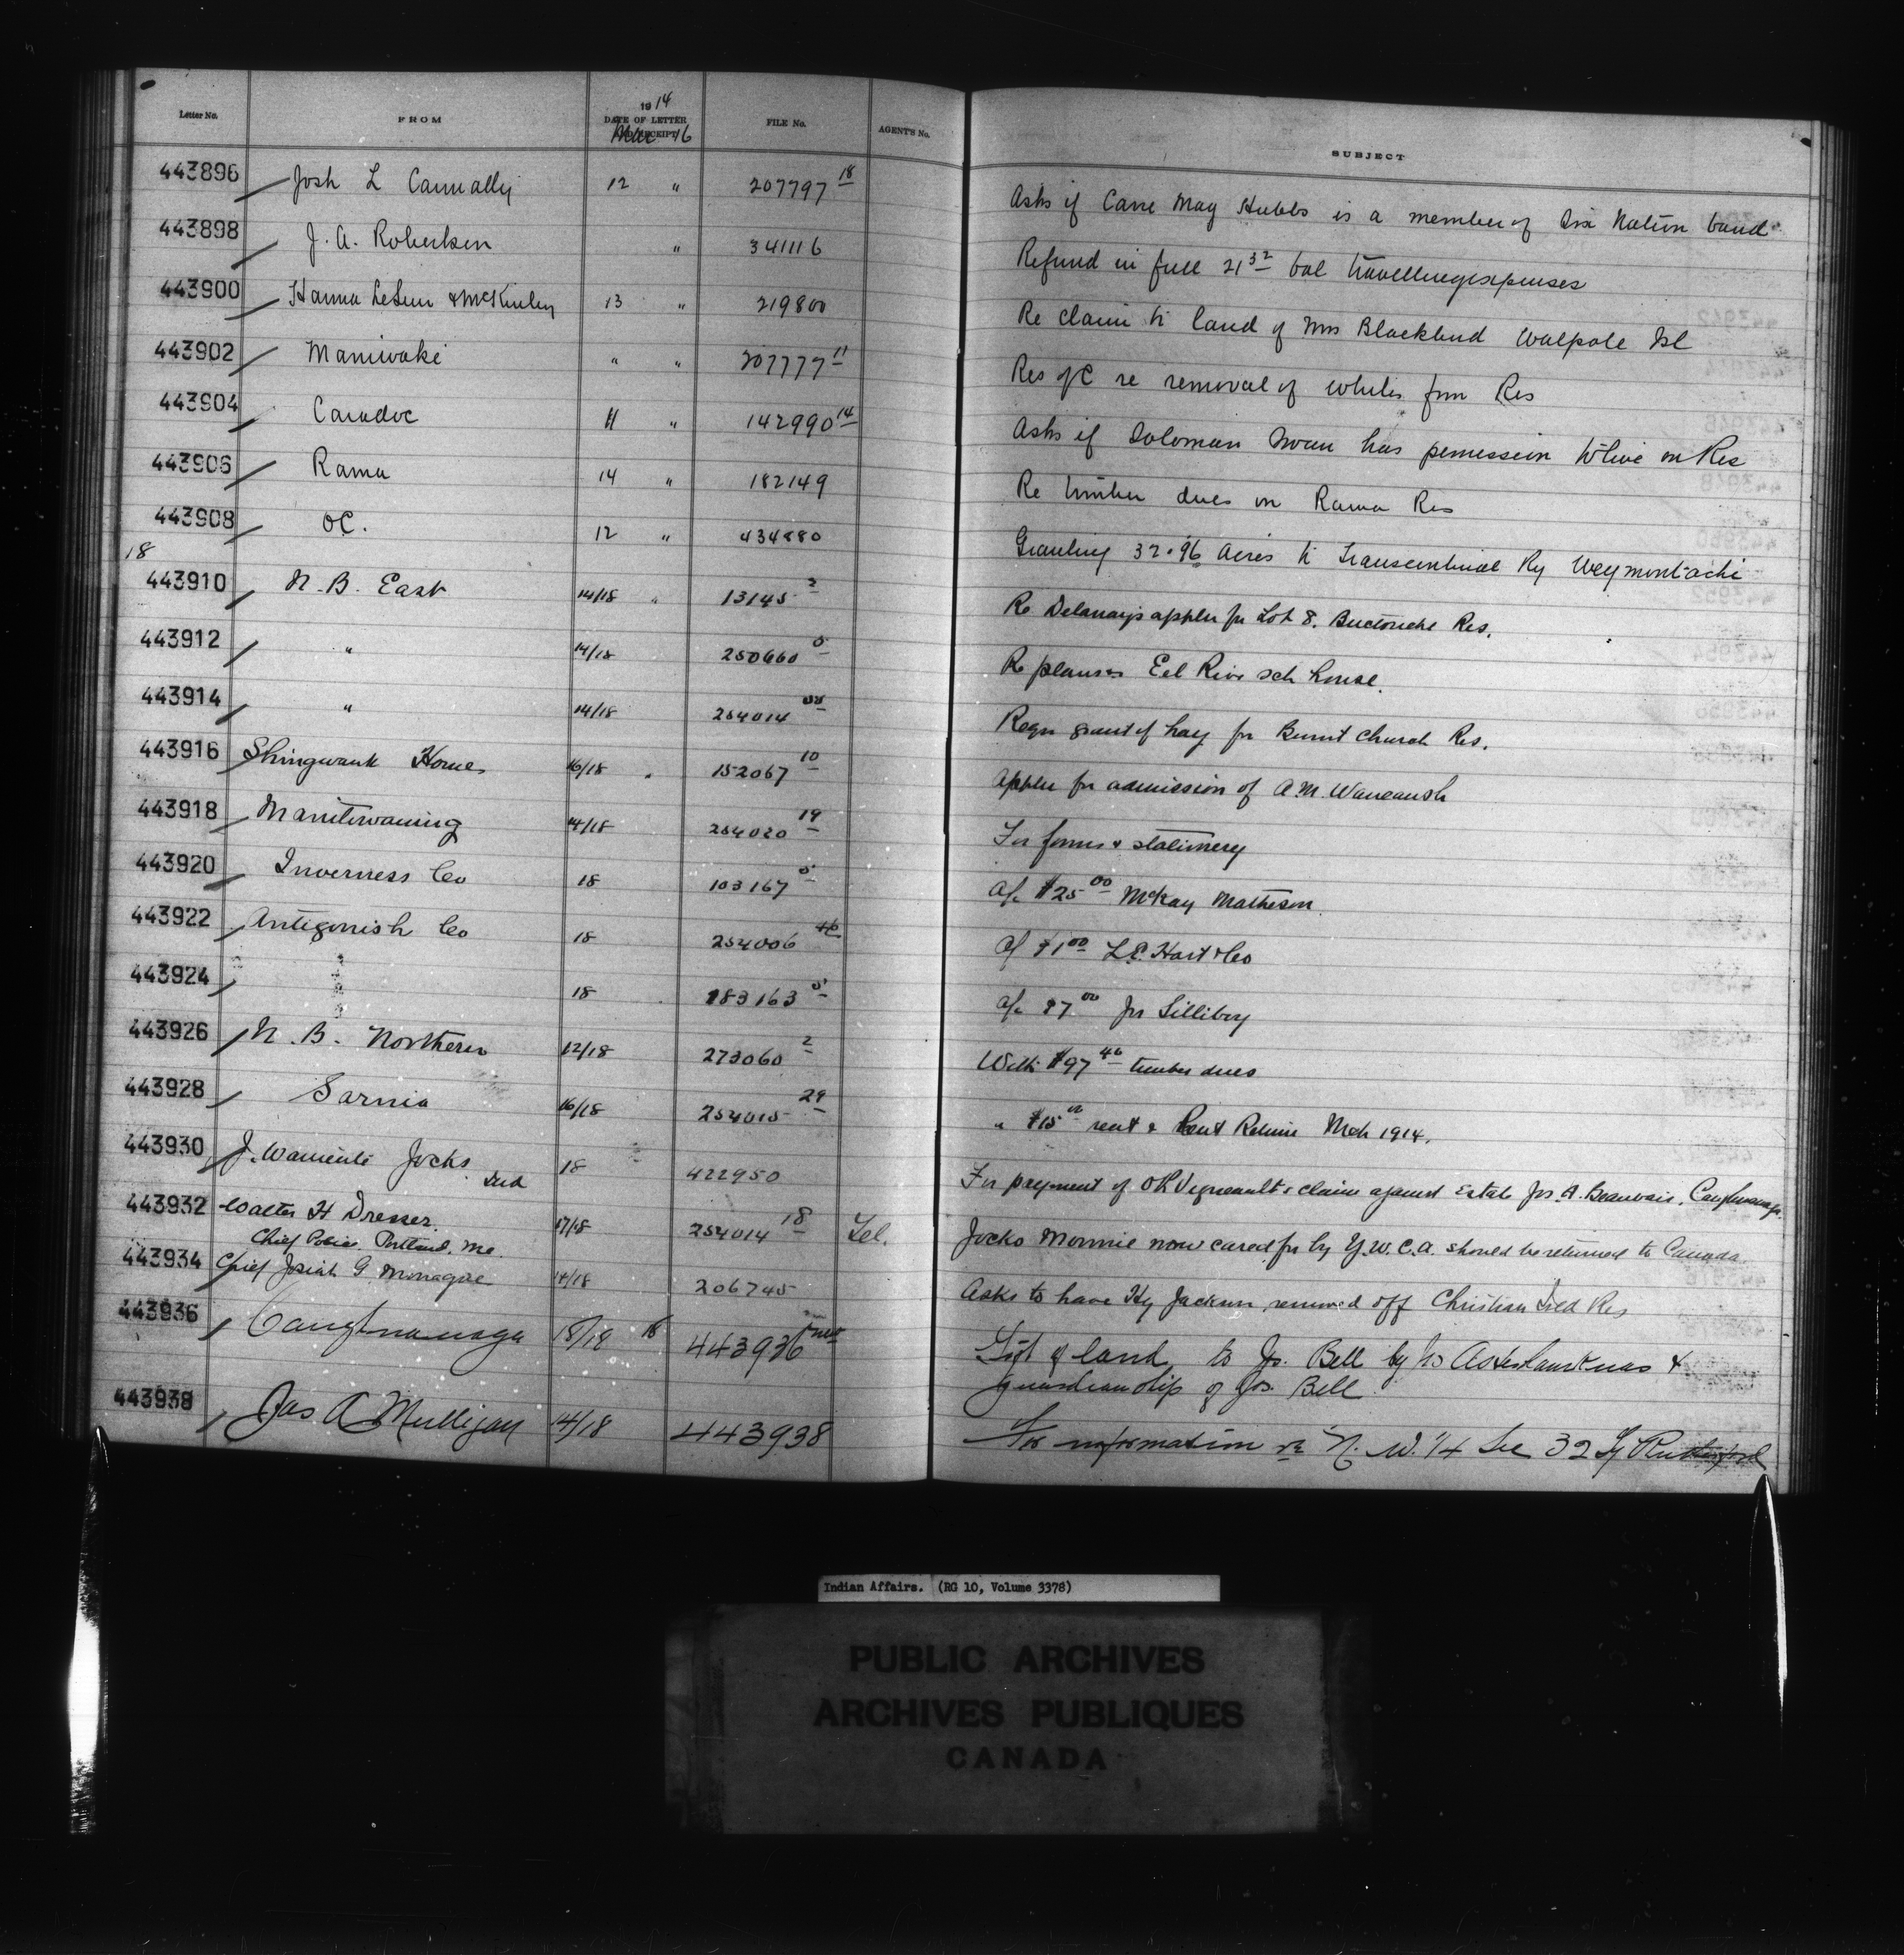 Letter No. FROM 1914 DATE OF LETTER AND RECEIPT FILE No. AGENT'S No. SUBJECT
Mar 16
443896 Josh L Connally 12 " 207797 18 Asks if Carrie May Hubbs is a member of Six Nation band
443898 J. A. Robertson " 341116 Refund in full 21 32 bal travelling expenses
443900 Hanna LeSeur & McKinley 13 " 219800 Re claim to land of Mrs Blackbird Walpole Isl
443902 Maniwaki " " 207777 11 Res of C re removal of whites from Res
443904 Caradoc 11 " 142990 14 Asks if Soloman Swan has permission to live on Res
443906 Rama 14 " 182149 Re timber dues on Rama Res
443908 OC. 12 " 434880 Granting 32.96 acres to Transcontinal Ry Weymontachi
18
443910 N. B. East 14/18 " 13145 2 Re Delanays appln for Lot 8. Buctouche Res.
443912 " 14/18 250660 5 Re plans Eel River sch house.
443914 " 14/18 254014 Reqn grant of hay for Burnt Church Res.
443916 Shingwauk Home 16/18 " 152067 10 Appln for admission of A. M. Waucaush
443918 Manitowaning 14/18 254020 19 For forms & stationery
443920 Inverness Co 18 103167 5 A/c $25 00 McKay Matheson
443922 Antigonish Co 18 254006 A/c $1 00 L. C. Hart & Co
443924 18 183163 5 A/c $7 00 Jos Lilliboy
443926 N. B. Northern 12/18 273060 2 With $97 46 timber dues
443928 Sarnia 16/18 254015 29 " $15 00 rent & Rent Return Mch 1914.
443930 J. Jocks 18 422950 For payment of claim against Estate Jos. A. Beauvais, Caughnawaga.
443932 Walter H Dresser. 17/18 254014 18 Tel. Jocko Monnie now cared for by Y.W.C.A. should be returned to Canada.
Chief Police. Portland, Me.
443934 Chief Josiah G Monague 14/18 206745 Asks to have Hy Jackson removed off Christian Isld Res
443936 Caughnawaga 18/18 18 443936 Gift of land, to Jos. Bell by &
guardianship of Jos. Bell
443938 Jas A Mulligan 14/18 443938 For information re N. W. 1/4 Sec 32 Tp Rutherford
Indian Affairs. (RG 10, Volume 3378)
PUBLIC ARCHIVES
ARCHIVES PUBLIQUES
CANADA